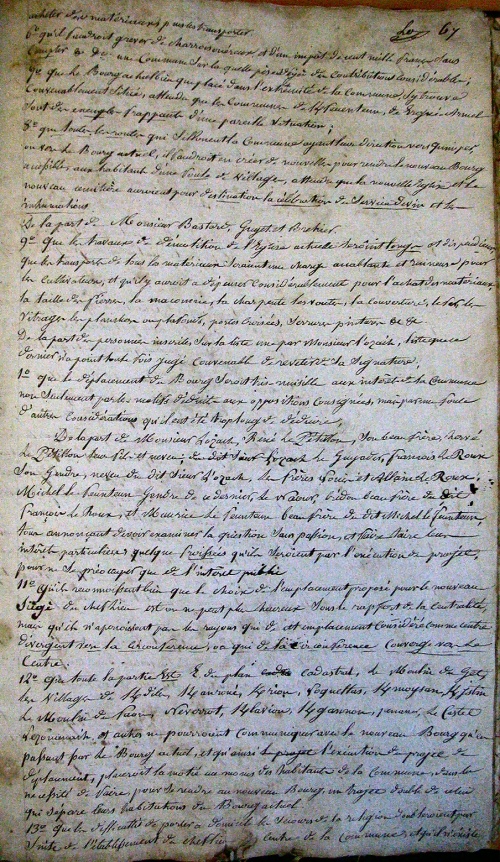 acheter des matériaux, puis les transporter
fo 67
6° qu'il faudrait grever de charrois onéreux et d'un impôt de cent mille francs sans
compter &c &c un Commune sur laquelle pèse déjà des Contributions Considérables;
7° que le Bourg a
Convenablement située, attendu que les Communes de
sont des exemples frappants d'une pareille situation;
8° que toutes les routes qui sillonnent la Commune ayant leur direction vers quimper,
ou vers le Bourg actuel, il faudrait en créer de nouvelles pour rendre le nouveau Bourg
accessible aux habitants d'une foule de villages, attendu que la nouvelle Eglise et le
nouveau cimetière auroient pour destination la célébration du Service divin et les
inhumations
De la part de Monsieur Bastard, Guget et
9° Que les travaux de démolition de l'Eglise actuelle seroient longs et dispendieux,
que les transports de tous les matériaux seraient une charge accablante et ruineuse pour
les Cultivateurs, et qu'il y aurait à dépenser Considérablement pour l'achat des matériaux,
la taille des pierres, la maçonnerie, la charpente les voutes, la couverture, le
Vitrage, les planchers ou plafonds, portes croisées, Serrure peinture &c &c
De la part des personnes inscrites sur la liste mise par Monsieur Lozach, liste que ce
dernier n'a point toute fois jugé Convenable de revêtir de sa Signature;
10° que le déplacement du Bourg Serait très nuisible aux intérêts de la Commune
non seulement par les motifs déduits aux oppositions Consignées, mais par une foule
d'autres Considérations qu'il est été trop long de déduire;
De la part de Monsieur Lozach, René Le Pétillon, Son beau frère, hervé
Le Pétillon leur fils et neveu du dit Sieur Lozach Le Guyader, François Le Roux
Son Gendre, neveu du dit Sieur Lozach, les frères Louis et Alain Le Roux,
Michel Le feunteun Gendre de ce dernier, beau frère du dit
François Le Roux, et Maurice Le feunteun beau frère du dit Michel Le feunteun,
tous annonçant devoir examiner la question Sans passion, et faire taire leur
intérêts particuliers quelque froissés qu'ils seroient par l'exécution du projet,
pour ne se préoccuper que de l'intérêt public
11° Qu'ils reconnoissent bien que le choix de l'emplacement proposé pour le nouveau
Siège du chef lieu est on ne peut plus heureux Sous le rapport de la centralité,
mais qu'ils n'aperçoivent pas les rayons qui de cet emplacement Considéré comme centre
divergent vers la circonférence, ou qui de la circonférence Convergent vers le
Centre;
12° que toute la partie Est E. du plan cadastral, le Moulin du Goz,
les Villages de
Le Moulin du le Castel
et autres ne pourroient Communiquer avec le nouveau Bourg qu'en
passant par le Bourg actuel, et qu'ainsi le projet l'exécution du projet de
déplacement, placerait la moitié au moins des habitants de la Commune, dans la
nécessité de faire, pour se rendre au nouveau Bourg, un trajet double de celui
qui sépare leurs habitations du Bourg actuel.
13° Que les difficultés de porter à domicile les Secours de la religion
Suite de l'établissement du chef lieu centre de la commune, et qu'il n'existe